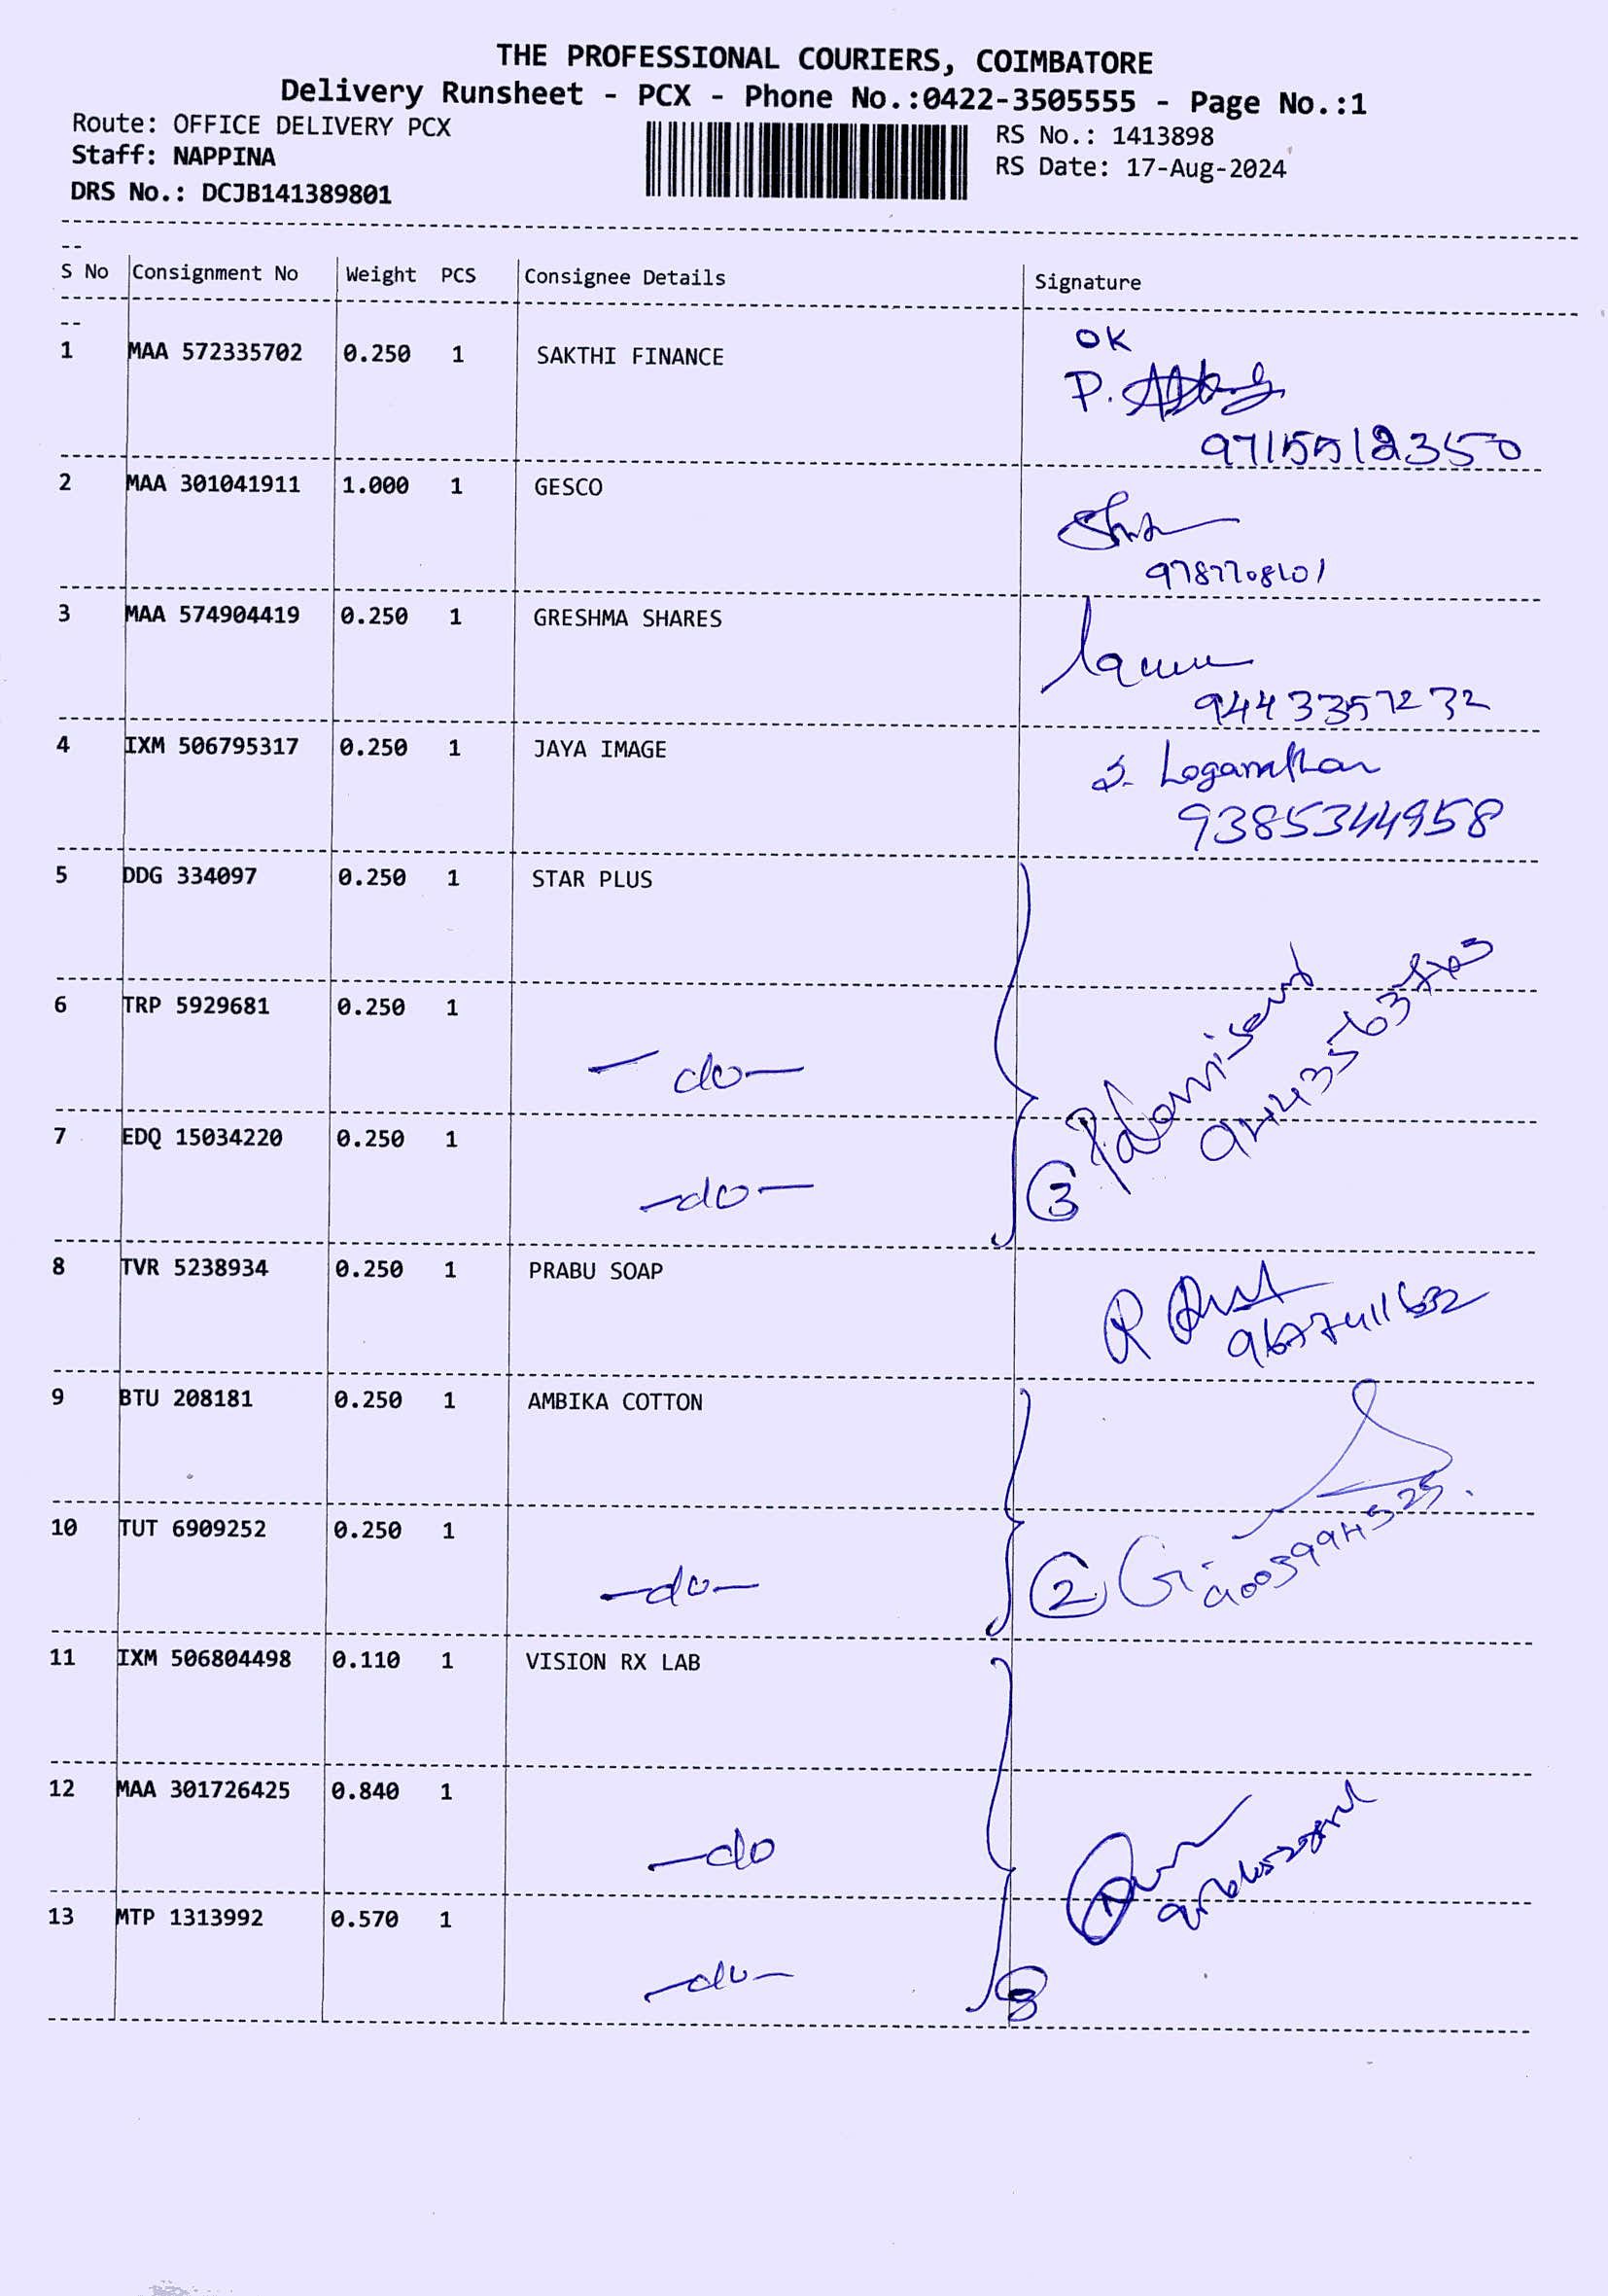 THE PROFESSIONAL COURIERS, COIMBATORE
Delivery Runsheet - PCX - Phone No.:0422-3505555 - Page No.:1
Route: OFFICE DELIVERY PCX
RS No.: 1413898
Staff: NAPPINA
RS Date: 17-Aug-2024
DRS No.: DCJB141389801
S No Consignment No Weight PCS Consignee Details Signature
OK
1 MAA 572335702 0.250 1 SAKTHI FINANCE
P.
2 MAA 301041911 1.000 1 GESCO
3 MAA 574904419 0.250 1 GRESHMA SHARES
9443357232
4 IXM 506795317 0.250 1 JAYA IMAGE
S. Loganathan
9385344958
5 DDG 334097 0.250 1 STAR PLUS
6 TRP 5929681 0.250 1
-do-
7 EDQ 15034220 0.250 1
-do-
3
8 TVR 5238934 0.250 1 PRABU SOAP
9 BTU 208181 0.250 1 AMBIKA COTTON
10 TUT 6909252 0.250 1
-do-
2
11 IXM 506804498 0.110 1 VISION RX LAB
12 MAA 301726425 0.840 1
-do
13 MTP 1313992 0.570 1
-do-
3